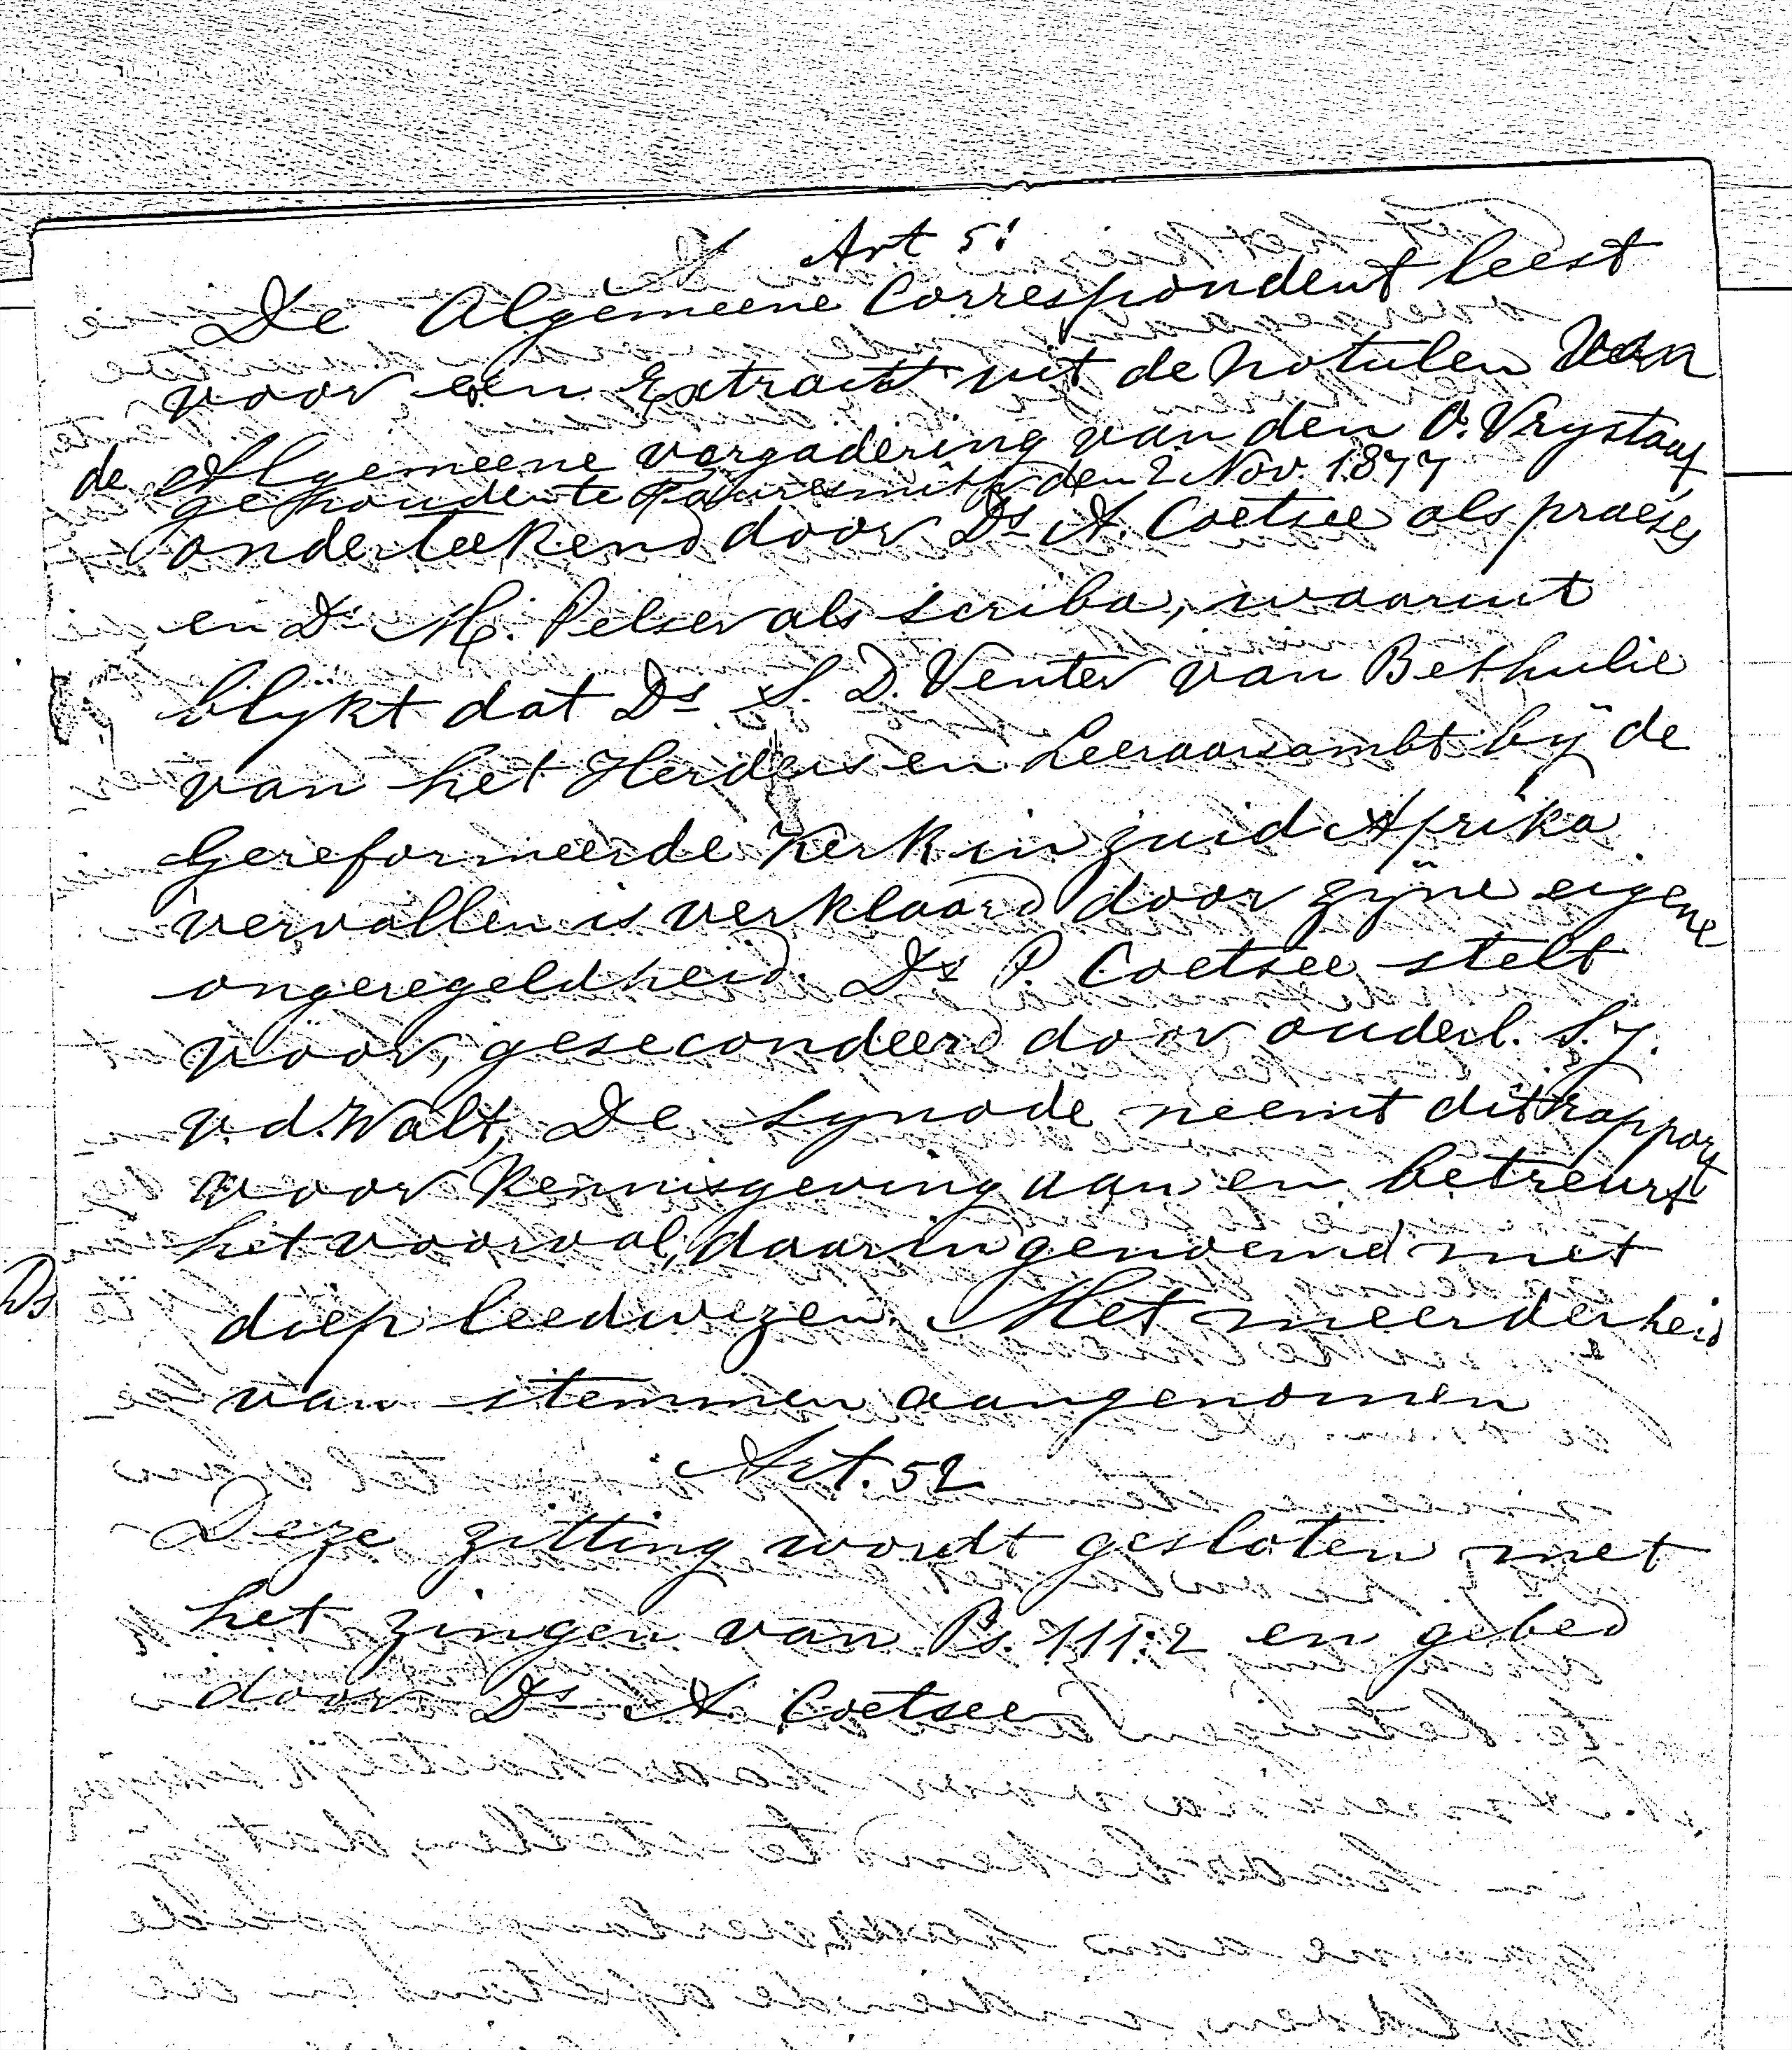 Art 51
De Algemeene Correspondent leest
voor een Extract uit de notulen van
de Algemeene vergadering van den O. Vrystaat,
gehouden te Fauresmith den 2 Nov. 1877
onderteekend door Ds A. Coetsee als praeses
en Ds M. Pelser als scriba, waaruit
blijkt dat Ds S. D. Venter van Bethulie
van het Herders en Leeraarsambt bij de
Gereformeerde Kerk in Zuid Afrika
vervallen is verklaard door zijne eigene
ongeregeldheid. Ds P. Coetsee stelt
voor, gesecondeerd door ouderl. S. J.
v.d. Walt, De Synode neemt dit rapport
voor kennisgeving aan en betreurt
het voorval, daarin genoemd met
diep leedwezen. Met meerderheid
van stemmen aangenomen
Art. 52
Deze zitting wordt gesloten met
het zingen van Ps. 111:2 en gebed
door Ds A. Coetsee
Ds